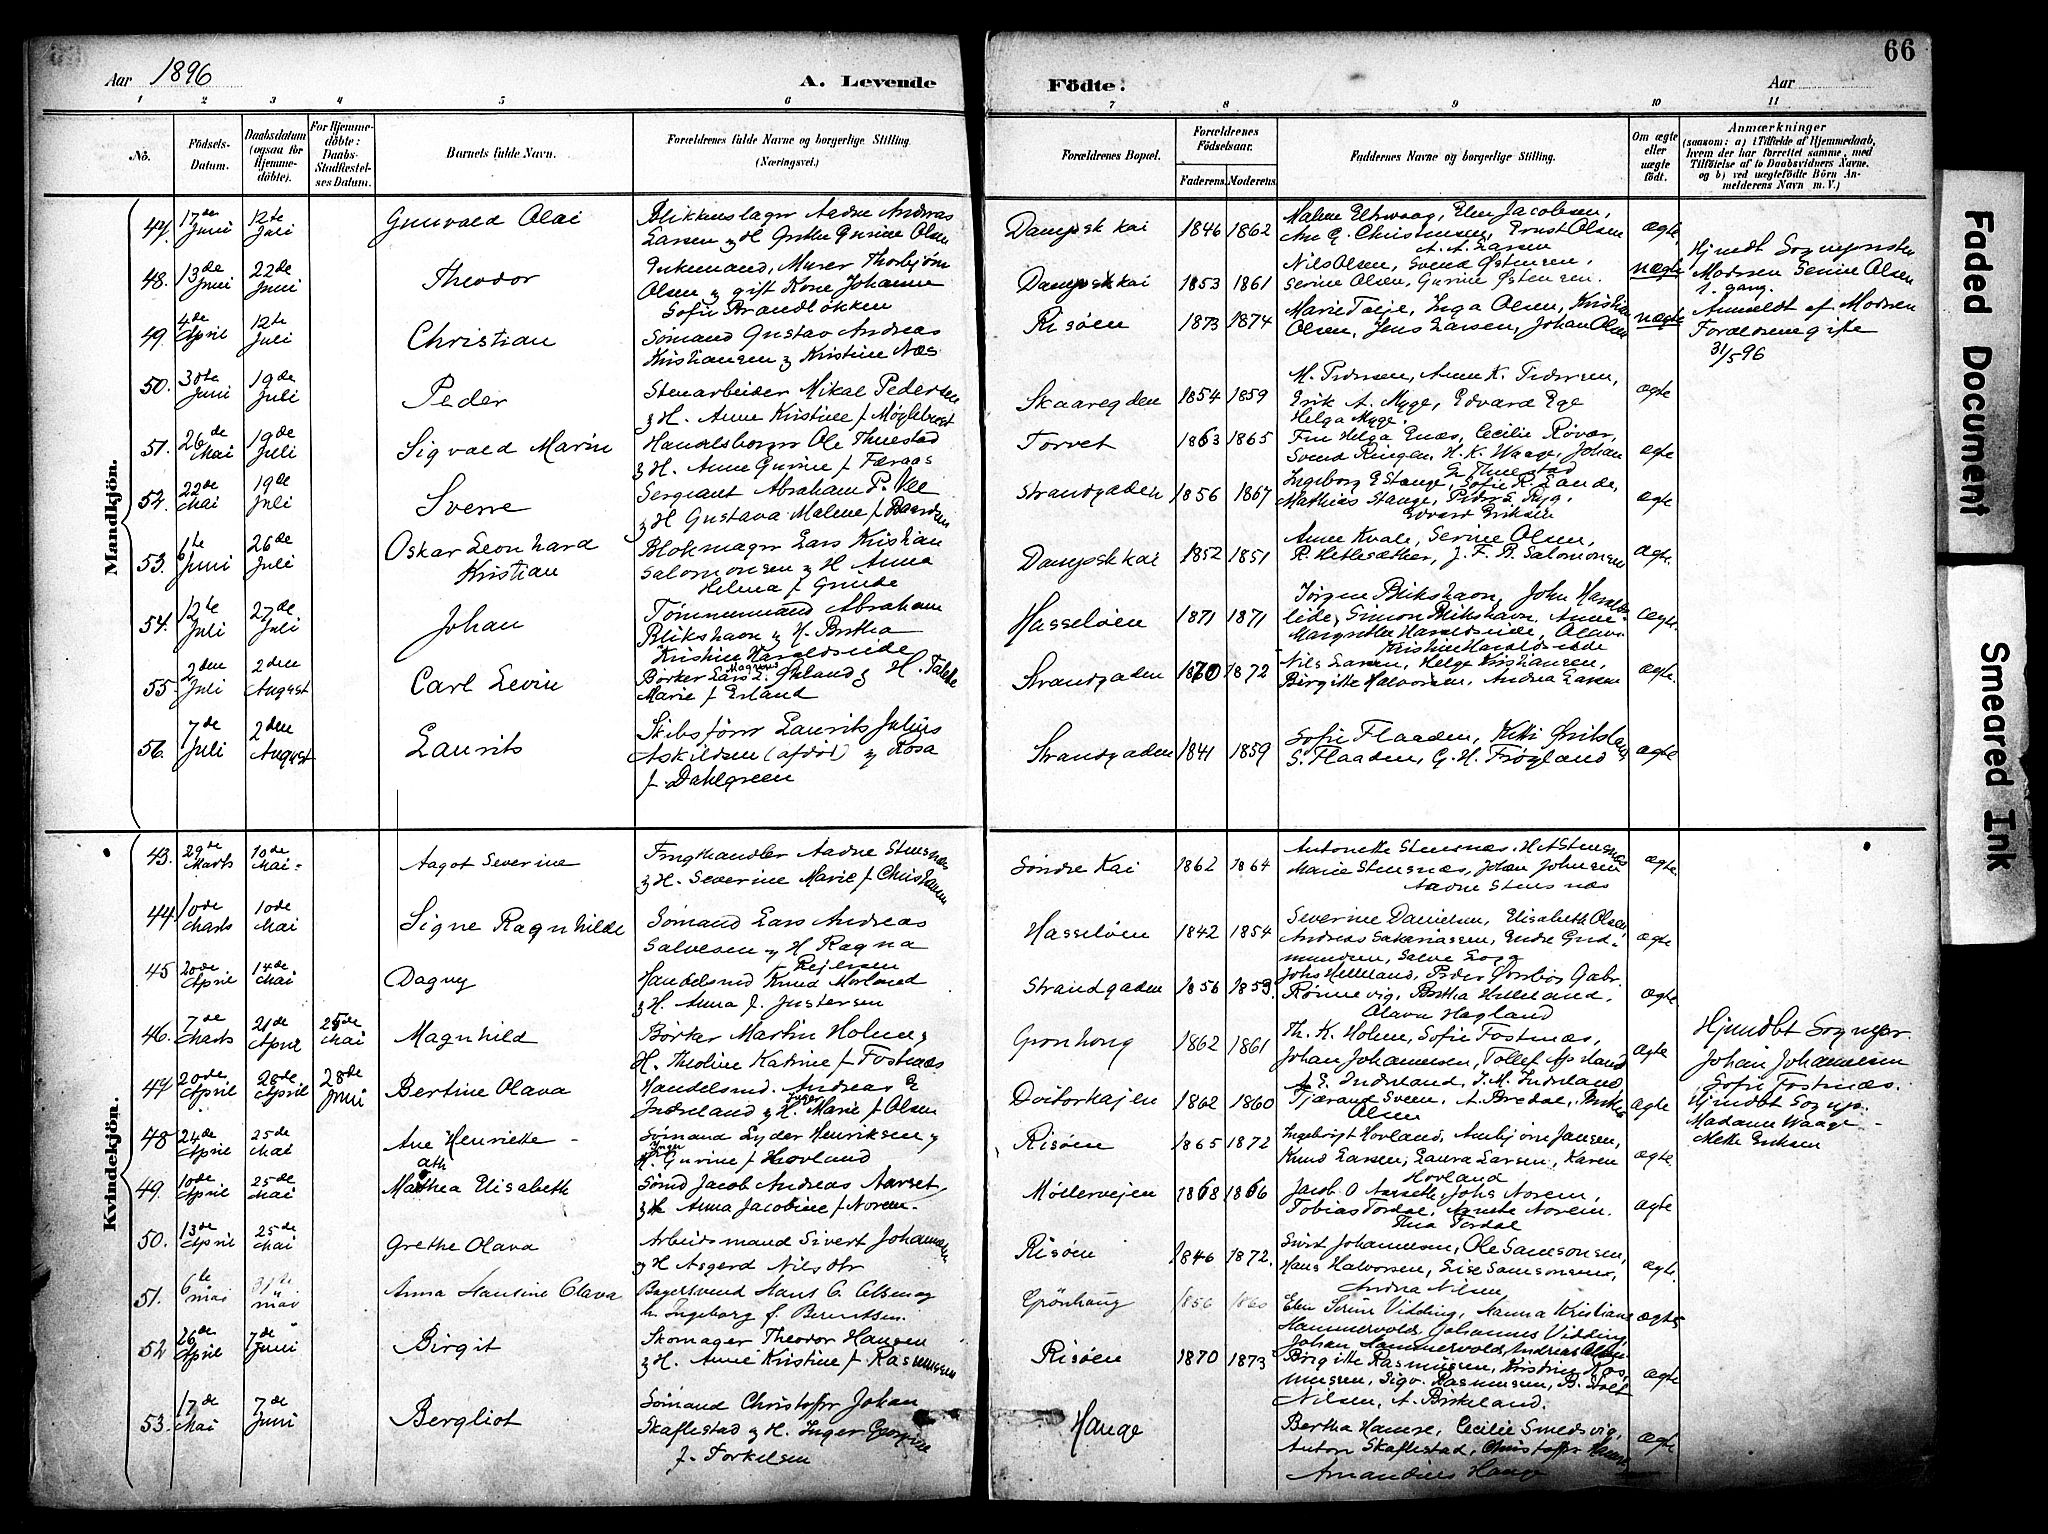 66
Aar 1896
A. Levende
Födte:
Aar
1 2 3 4 5 6 7 8 9 10 11
No.
Födsels-Datum.
Daabsdatum (ogsaa for Hjemme-döbte).
For Hjemme-döbte: Daabs-Stadfæstel-ses Datum.
Barnets fulde Navn.
Forældrenes fulde Navne og borgerlige Stilling. (Næringsvei.)
Forældrenes Bopæl.
Forældrenes Födselsaar.
Faderens. Moderens.
Faddernes Navne og borgerlige Stilling.
Om ægte eller uægte födt.
Anmærkninger
(saasom: a) i Tilfælde af Hjemmedaab, hvem der har forrettet samme, med Tilföielse af to Daabsvidners Navne, og b) ved uægtefödte Börn An-melderens Navn m. V.)
Mandkjön.
47. 17de Juni 12te Juli Gunvald Olai
Blikkenslager Aadne Andreas
Larsen & H. Grethe Gurine Olsen
Dampskkai 1846 1862
Ane G. Christensen, Ernst Olsen
A. A. Larsen
ægte
48. 13de Juni 22de Juni Theodor
Enkemand, Murer Thorbjørn
Olsen & gift Kone Johanne
Sofie Brandløkken
Dampskkai 1853 1861
Nils Olsen, Svend Østensen,
Serine Olsen, Gurine Østensen.
uægte
Modsen Serine Olsen
1. gang.
49. 4de April 12te Juli Christian
Sømand Gustav Andreas
Kristiansen & Kristine Næs
Risøen 1873 1874
Marie Tøije, Inga Olsen, Kristian
Olsen, Jens Larsen, Johan Olsen
uægte
Anmeldt af Modren
Forældrene gifte
31/5 96
50. 30te Juni 19de Juli Peder
Stenarbeider Mikal Pedersen
& H. Anne Kristine f. Møglebust
Skaaregden 1854 1859
M. Pedersen, Anne K. Pedersen,
Erik A. Myge, Edvard Ege
Helga Myge.
ægte
51. 26de Mai 19de Juli Sigvald Marin
Handelsborger Ole Thuestad
& H. Anne Gurine f. Færaas
Torvet 1863 1865
Fru Helga Enæs, Cecilie Røvær,
Svend Ringen, H. K. Waage, Johan
G. Thuestad
ægte
52. 22de Mai 19de Juli Sverre
Sergeant Abraham P. Vee
& H Gustava Malene f. Baardsen
Strandgaden 1856 1867
Ingeborg G Stange, Sofie R. Lande,
Mathias Stange, Peder S. Ryg,
Edvard Eriksen
ægte
53. 1te Juni 26de Juli Oskar Leonhard
Kristian
Blokmager Lars Kristian
Salomonsen & H Anna
Helena f. Grinde
Dampskkai 1852 1851
Anne Kvale, Serine Olsen,
R. Hetlesæther, J. F. B. Salomonsen
ægte.
54. 12te Juli 27de Juli Johan
Tømmermand Abraham
Blikshavn & H. Bertha
Kristine Haraldseide
Hasseløen 1871 1871
Jørgen Blikshavn, John Haralds
eide, Simon Blikshavn, Anne
Margrethe Haraldseide, Olava
Kristine Haraldseide
ægte.
55. 2den Juli 2den August Carl Levin
Bødker Lars L. Magnus Ønland & H. Talette
Marie f. Erland
Strandgaden 1870 1872
Nils Larsen, Helge Kristiansen,
Birgitte Halvorsen, Andrea Larsen
ægte.
56. 7de Juli 2den August Laurits
Skibsfører Laurits Julius
Askildsen (afdød) & Rosa
f. Dahlgreen
Strandgaden 1841 1859
S. Flaaden, G. H. Frøyland
ægte
Kvindekjön.
43. 29de Marts 10de Mai Aagot Severine
Frugthandler Aadne Stensnæs
& H. Severine Marie f. Christensen
Søndre Kai 1862 1864
Antonette Stensnæs, H. A. Stensnæs
Marie Stensnæs, Johan Johnsen
Aadne Stensnæs
ægte.
44. 10de Marts 10de Mai Signe Ragnhilde
Sømand Lars Andreas
Salvesen & H Ragna
Reiersen
Hasseløen 1842 1854
Severine Danielsen, Elisabeth Olsen,
Andreas Sakariassen, Endre Gud-
mundsen, Salve Lo
ægte
45 20de April 14de Mai Dagny
Handelsmd Knud Morland
& H. Anna f. Justersen
Strandgaden 1856 1859
Johs Helleland, Peder Ørebø, Gabr.
Rønnevig, Bertha Helleland,
Olava Hagland
ægte
46. 7de Marts 21de April 25de Mai Magnhild
Bødker Martin Holme &
H. Theoline Katrine f. Fostnæs
Grønhoug 1862 1861
Th. K. Holme, Sofie Fostnæs,
Johan Johannesen, Tollef Apeland
ægte
Johan Johannesen
Sofie Fostnæs.
47 20de April 28de April 28de Juni Bertine Olava
Handelsmd. Andreas E
Indreland & H. Inger Marie f. Olsen
Doitorkajen 1862 1860
A. E. Indreland, J. M. Indreland
Tjærand Sveen, A. Bredal,
Olsen
ægte
Madame Waage
Mette Eriksen
48 24de April 25de Mai Ane Henriette
Sømand Lyder Henriksen &
H. Gurine f. Hovland
Risøen 1865 1872
Ingebrigt Hovland, Anbjørn Jansen,
Knud Larsen, Laura Larsen, Karen
Hovland
ægte.
49. 10de April 25de Mai Mathea Elisabeth
Sømd Jacob Andreas Aarset
& H Anna Jacobine f. Norem
Møllervejen 1868 1866
Jacob O Aarseth, Johs Norem,
Tobias Tordal, Agnethe Norem.
Thea Tordal
ægte
50. 13de April 25de Mai Grethe Olava
Arbeidsmand Sivert Johannesen
& H Asgerd Nilsdtr
Risøen 1846 1872
Sivert Johannesen, Ole Samsonsen,
Hans Halvorsen, Lise Samsonsen,
Andrea Nilsen
ægte.
51. 6te Mai 31te Mai Anna Hansine Olava
Bagersvend Hans C. Olsen og
h. Ingeborg f. Berentsen.
Grönhaug 1856 1860
Elen Serine Vidding, Hanna Kristiane
Hammervold, Johannes Vidding
Johan Hammervold, Andreas Olsen
ægte
52 26de April 7de Juni Birgit
Skomager Theodor Hansen
& H. Anne Kristine f. Rasmussen
Risøen 1870 1873
Birgitte Rasmussen, Kristine Ras
mussen, Sigv. Rasmussen, B. Stolt
Nilsen, A. Birkeland.
ægte
53. 17de Mai 7de Juni Bergliot
Sømand Christoffer Johan
Skaflestad & H. Inger Georgine
f. Torkelsen
Hauge
Bertha Hamre, Cecilie Smedsvig,
Anton Skaflestad, Christoffer Hamre
Amandius Hauge
ægte
Faded Document
Smeared Ink